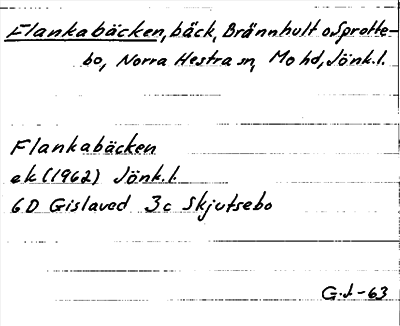 Flankabäcken, bäck, Brännhult o Sprotte-
bo, Norra Hestra sn, Mo hd, Jönk.l.
Flankabäcken
ek (1962) Jönk.l.
6D Gislaved 3c Skjutsebo
G.J.-63